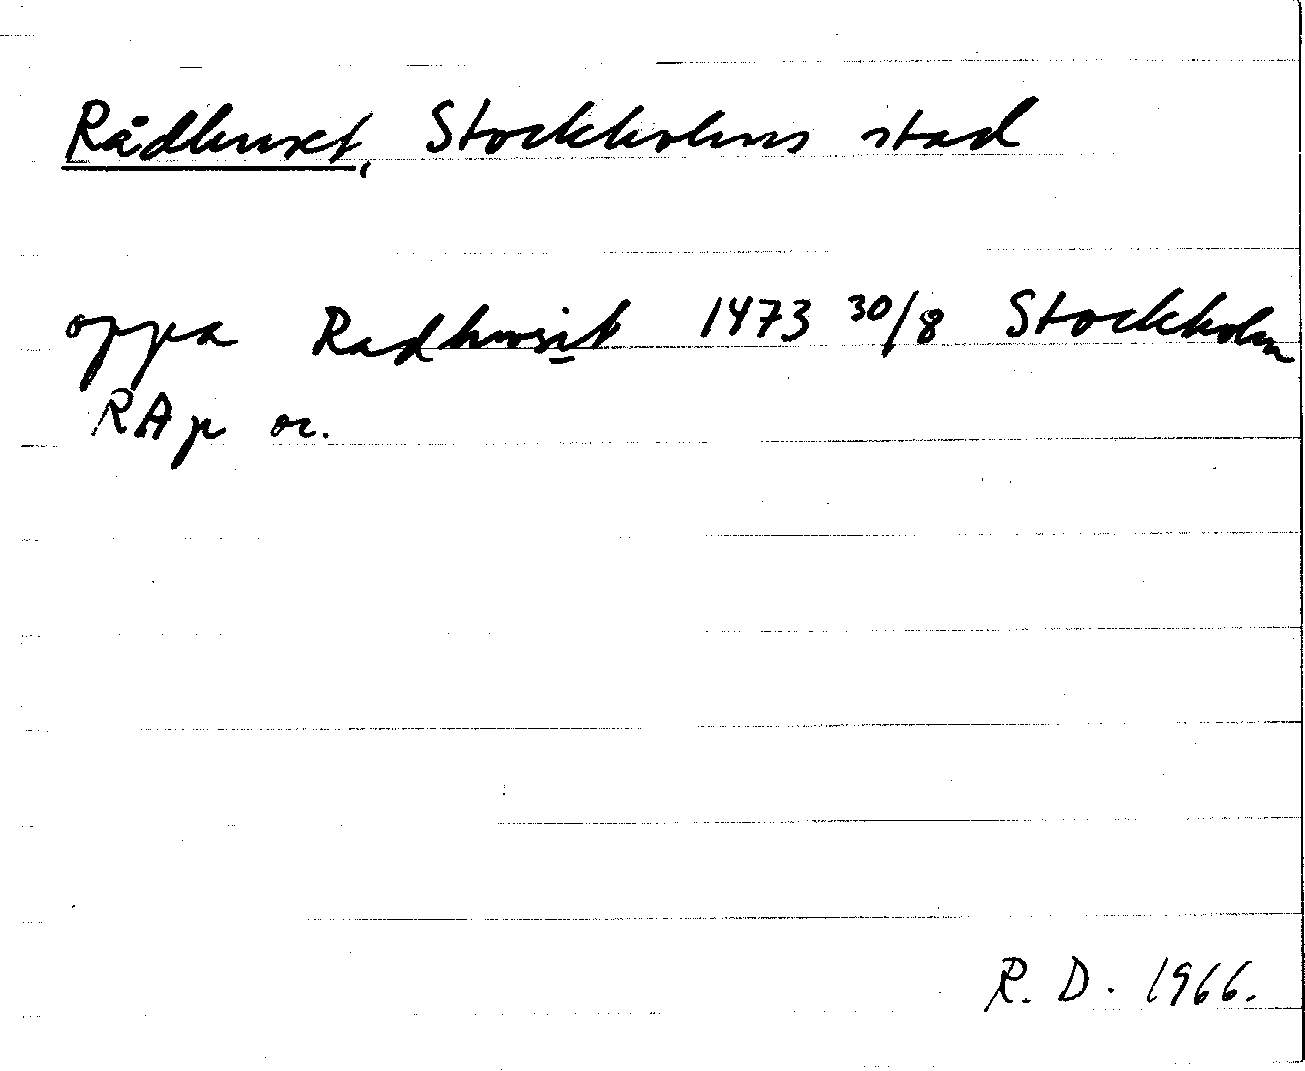 Rådhuset, Stockholms stad
oppa Radhwsit 1473 30/8 Stockholm
RAp or.
R. D. 1966.